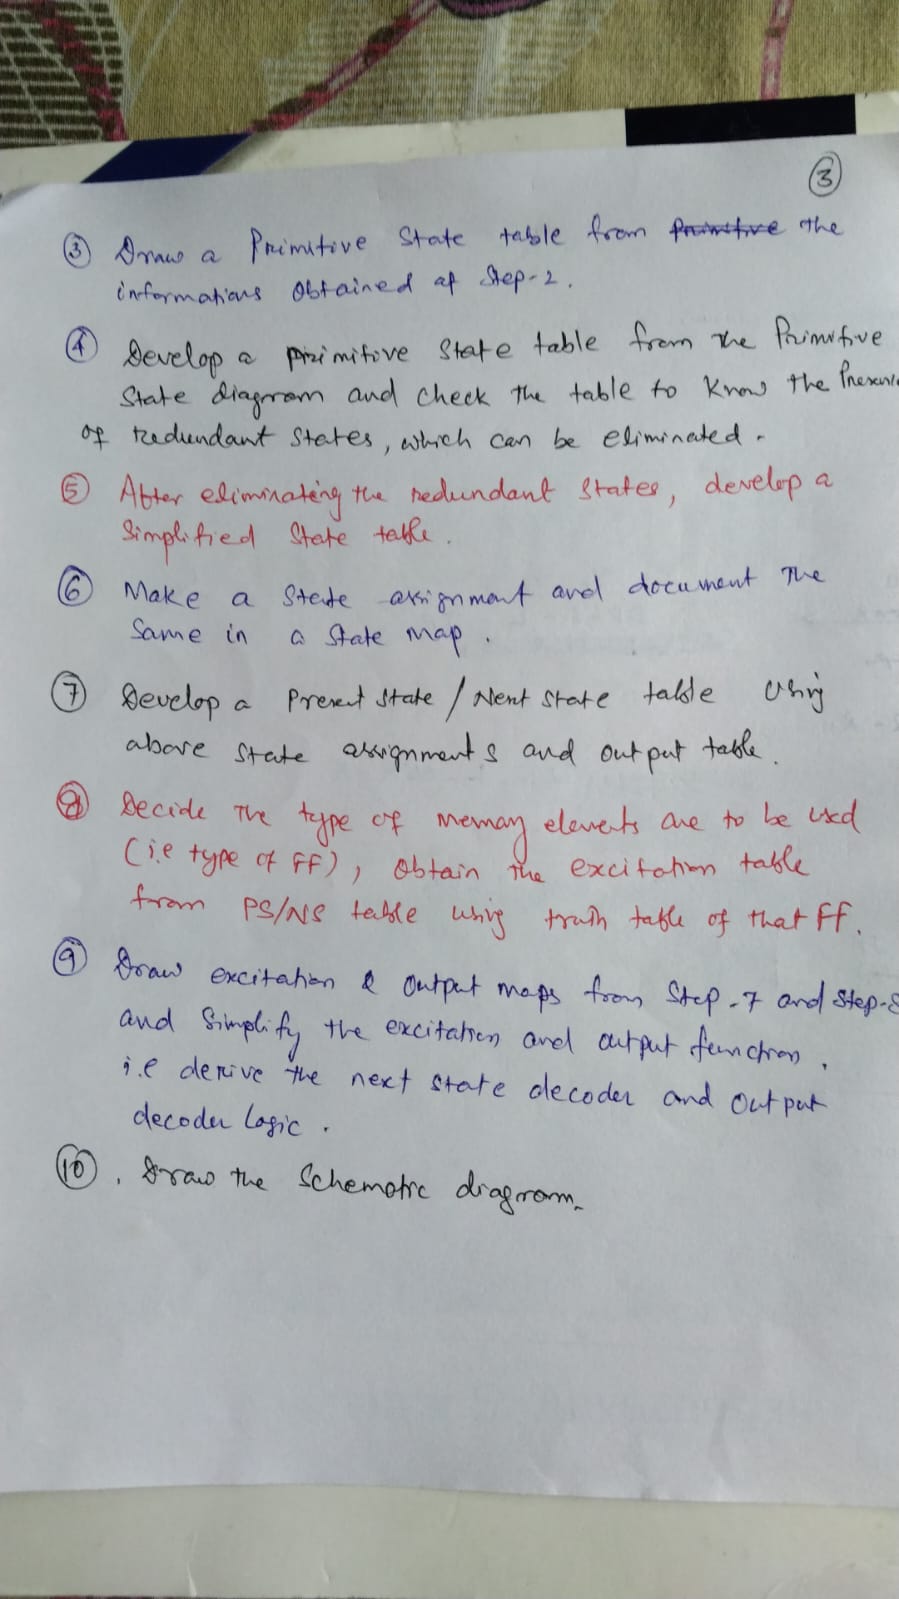 3
③ Draw a Primitive State table from primitive the
informations obtained at Step-2.
④ Develop a primitive State table from the Primitive
State diagram and check the table to know the
of redundant states, which can be eliminated.
⑤ After eliminating the redundant states, develop a
Simplified State table.
⑥ Make a State assignment and document the
Same in a State map.
⑦ Develop a Present State / Next State table using
above State assignments and output table.
⑧ Decide the type of memory elements are to be used
(i.e type of FF), obtain the excitation table
from PS/NS table using truth table of that FF.
⑨ Draw excitation & output maps from Step-7 and Step-8
and Simplify the excitation and output function.
i.e derive the next state decoder and output
decoder logic.
⑩. Draw the Schematic diagram.